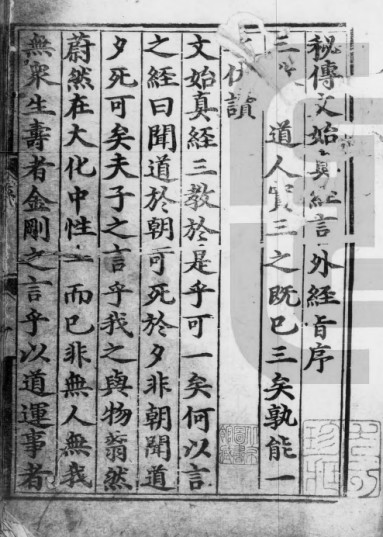 秘傳文始真經言外經旨序
三道人實三之既已三矣孰能一
伏讀
文始真經三教於是乎可一矣何以言
之經曰聞道於朝可死於夕非朝聞道
夕死可矣夫子之言乎我之與物蓊然
蔚然在大化中性一而已非無人無我
無衆生壽者金剛之言乎以道運事者